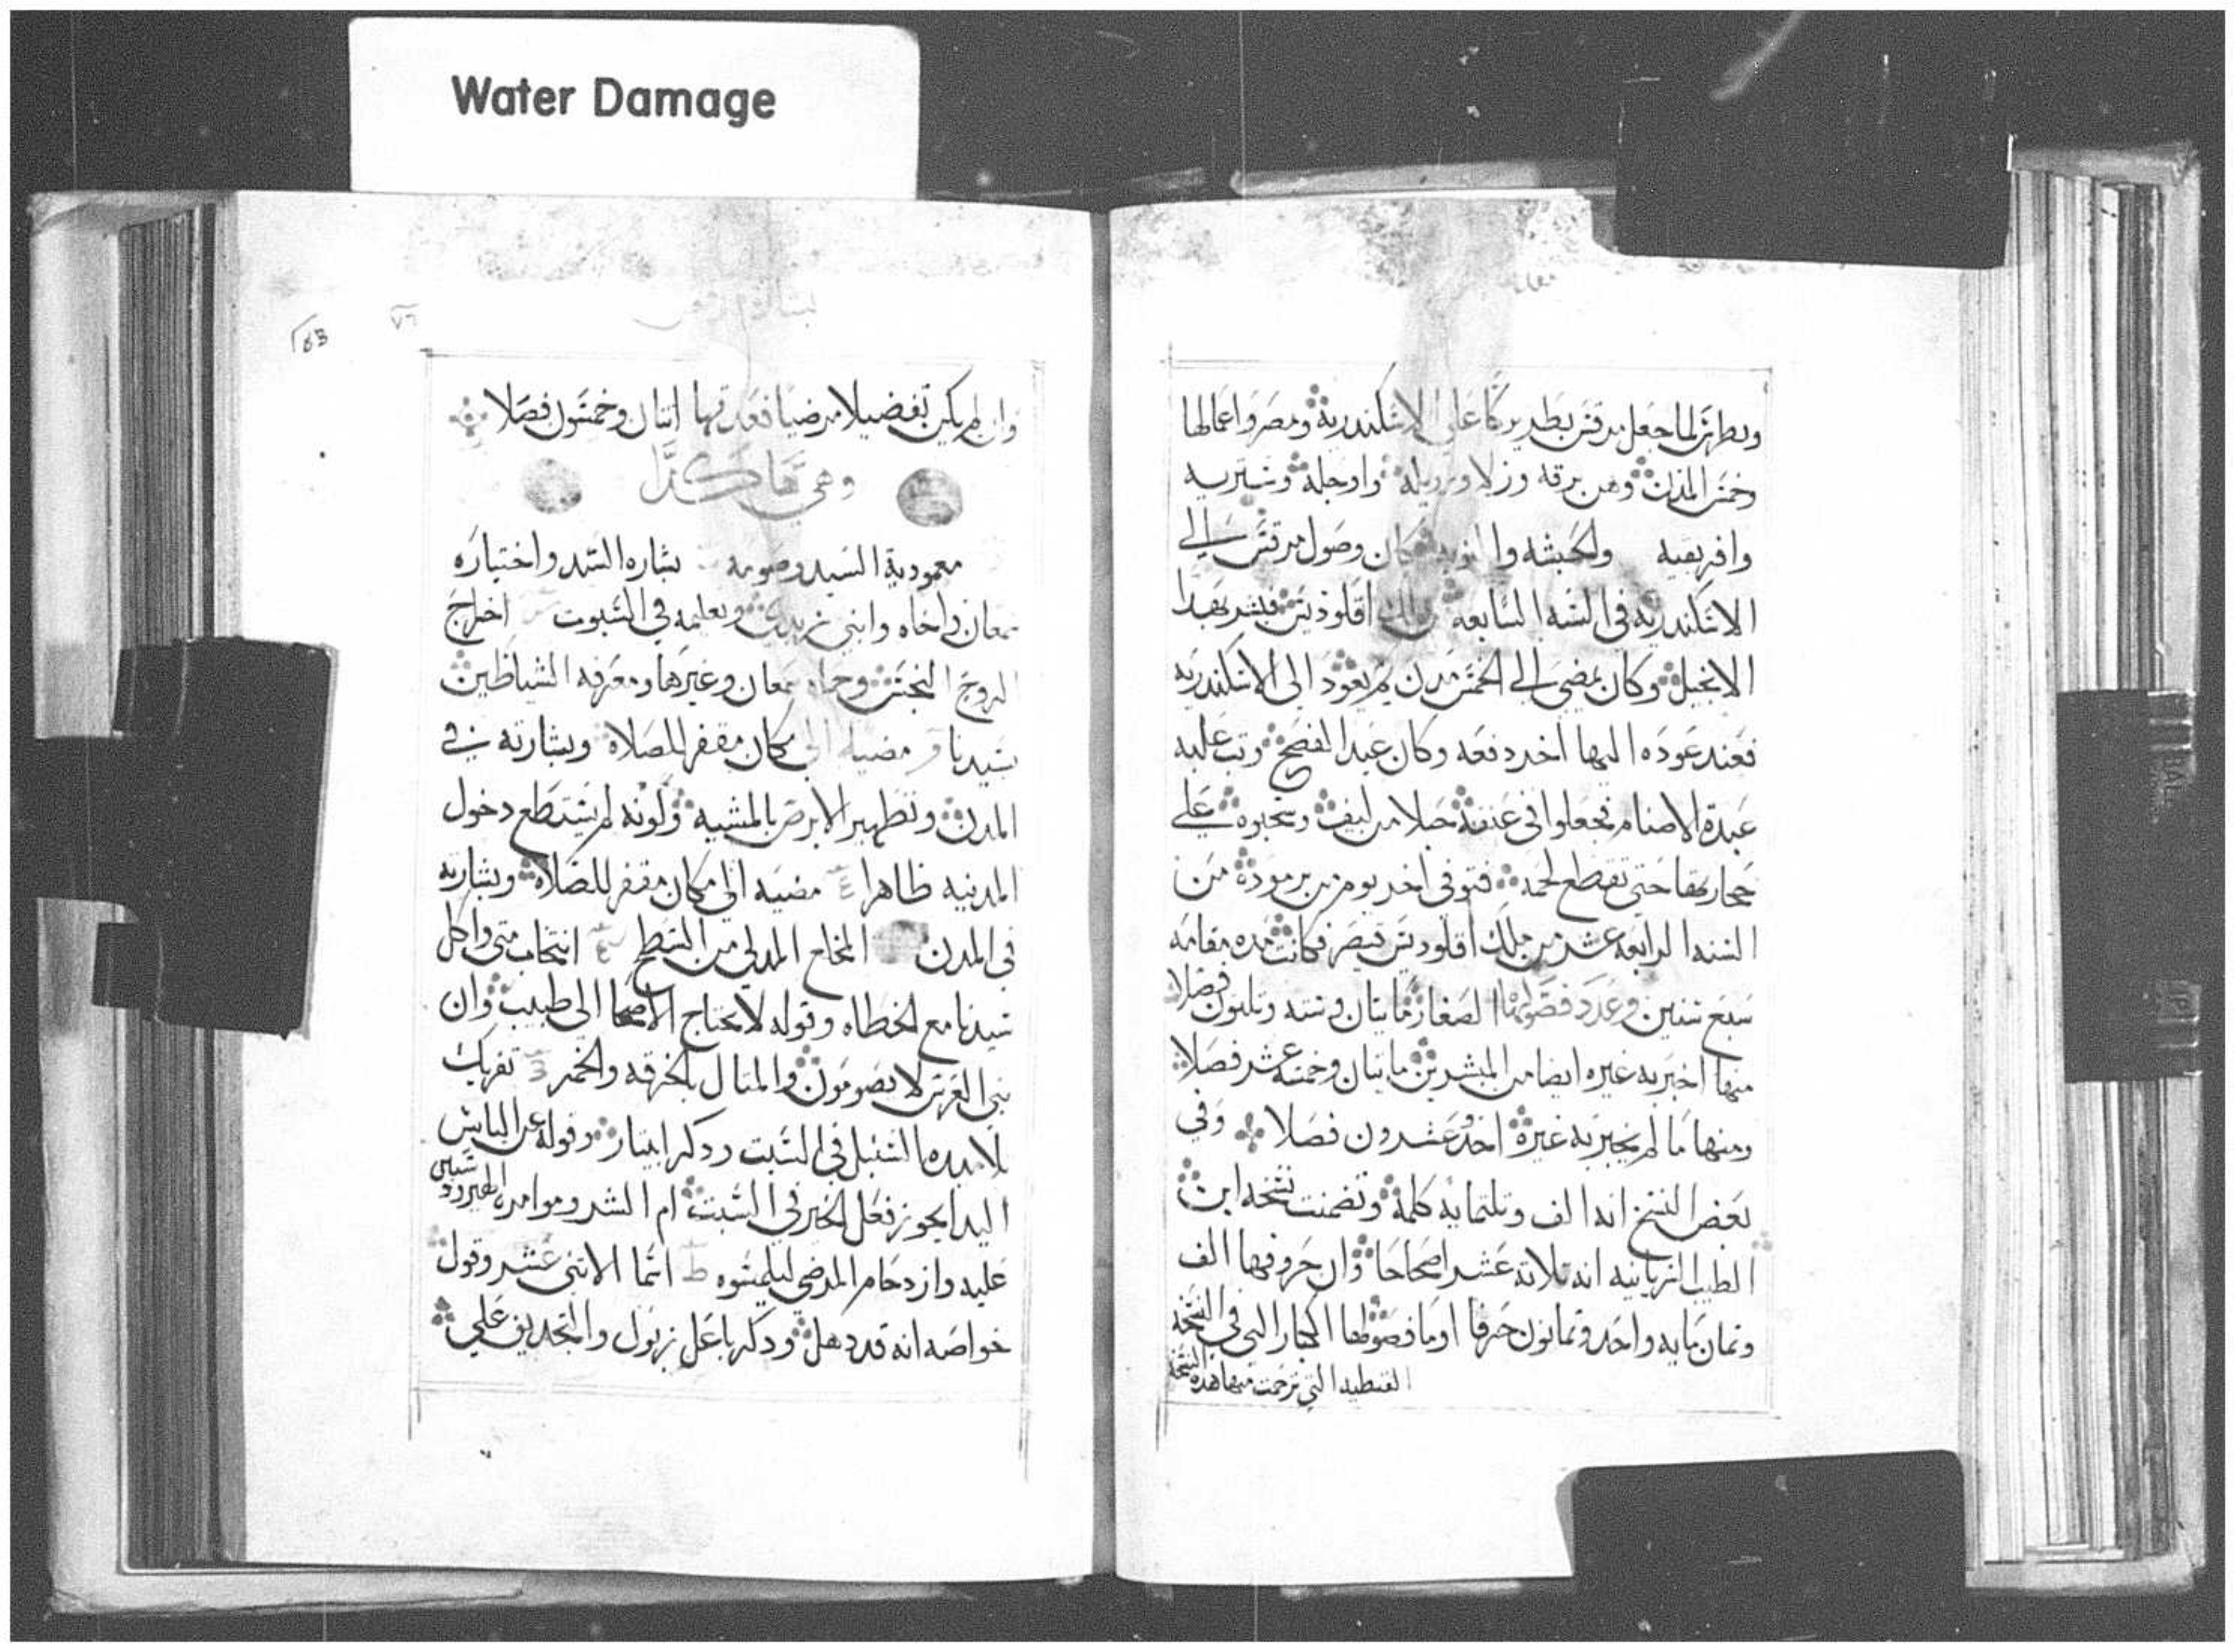 Water Damage
وبطرس لما جعل مرقس بطريركا على الاسكندرية ومصر واعمالها
وخمس المدن وهن برقه وزلا واوجله وسنتريه
وافريقيه والحبشه والنوبه كان وصول مرقس الى
الاسكندريه في السنه السابعه اقلوديس فبشر بهدا
الانجيل وكان يمضي الى الخمس مدن ثم يعود الى الاسكندريه
فعند عوده اليها اخر دفعه وكان عيد الفصح وتب عليه
عبدة الاصنام فجعلوا في عنقه حبلا من ليف وسحبوه على
حتى تقطع لحمه فتوفي اخر يوم من برموده من
السنه الرابعه عشر من ملك اقلوديس قيصر فكانت مده مقامه
سبع سنين وعدد الصغار مايتان وسته وتلتون فصلا
منها اخبر به غيره ايضا من المبشرين مايتان وخمسه عشر فصلا
ومنها ما لم يخبر به غيره احد عشرون فصلا وفي
بعض النسخ انه الف وتلتمايه كلمة وتضمنت نسخه ابن
الطيب السريانيه انه تلاتة عشر اصحاحا وان حروفها الف
وتمان مايه واحد وتمانون حرفا اوما فصولها الكبار التي في النسخه
القبطيه التي ترجمت منها هده النسخه
٧٦
وان لم يكن تفضيلا مرضيا فعدتها اتنان وخمسون فصلا
وهي هاكذا
معمودية السيد وصومه بشاره السيد واختياره
سمعان واخاه وابني زبدي وتعليمه في السبوت اخراج
الروح النجس وحماه سمعان وغيرها ومعرفه الشياطين
بسيدنا مضيه الى مكان مقفر للصلاه وبشارته في
المدن وتطهير الابرص بالمشيه وكونه لم يستطع دخول
المدينه ظاهرا مضيه الى مكان مقفر للصلاة وبشارته
في المدن المخلع المدلي من السطح انتخاب متى واكل
سيدنا مع الخطاه وقوله لا يحتاج الاصحا الى طبيب وان
بني العرس لا يصومون والمتال بالخرقه والخمر تفريك
تلاميده السنبل في السبت ودكر ابيتار وقوله عن اليابس
اليد ايجوز فعل الخير في السبت ام الشر
عليه وازدحام المرضي ليلمسوه اسما الاتني عشر وقول
خواصه انه قد دهل ودكر باعل زبول والتجديف على